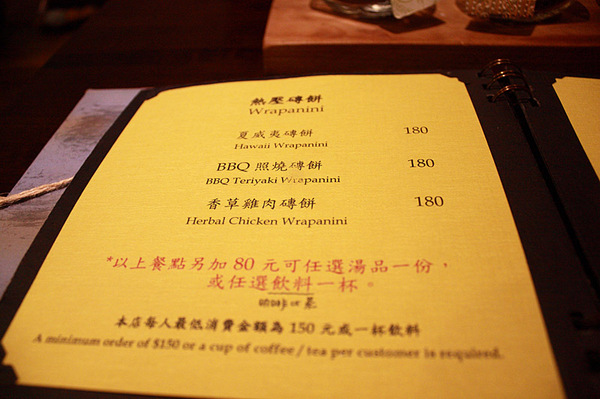 熱壓磚餅
Wrapanini
夏威夷磚餅 180
Hawaii Wrapanini
BBQ 照燒磚餅 180
BBQ Teriyaki Wrapanini
香草雞肉磚餅 180
Herbal Chicken Wrapanini
*以上餐點另加 80 元可任選湯品一份，
或任選飲料一杯。
本店每人最低消費金額為 150 元或一杯飲料
A minimum order of $150 or a cup of coffee / tea per customer is required.